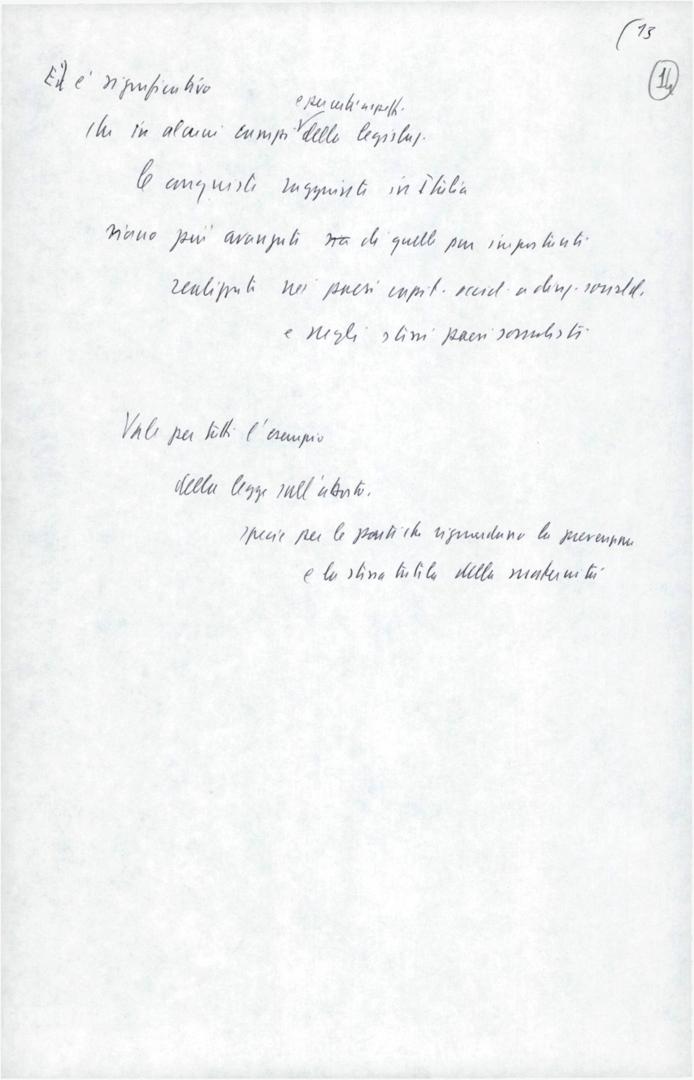 13
14
Ed è significativo
e per certi aspetti
che in alcuni campi della legislaz.
le conquiste raggiunte in Italia
siano più avanzate di quelle pur importanti
realizzate nei paesi capit. occid. a direz. socialid.
e negli stessi paesi socialisti
Vale per tutti l'esempio
della legge sull'aborto.
specie per le parti che riguardano la prevenzione
e la stessa tutela della maternità